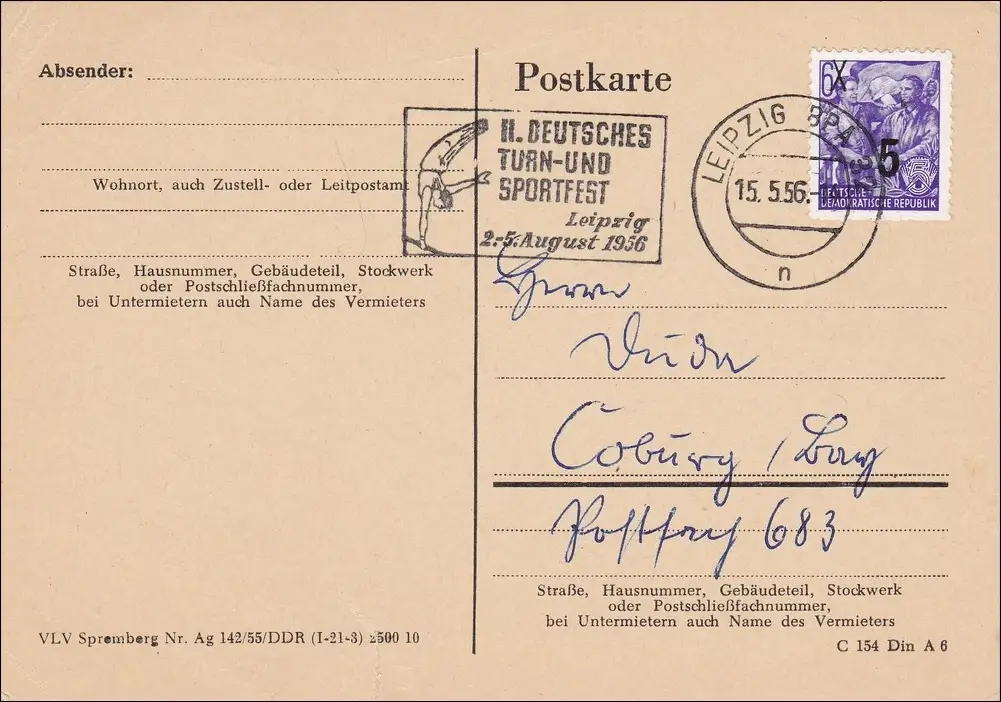 Absender:
Wohnort, auch Zustell- oder Leitpostamt
Straße, Hausnummer, Gebäudeteil, Stockwerk
oder Postschließfachnummer,
bei Untermietern auch Name des Vermieters
VLV Spremberg Nr. Ag 142/55/DDR (I-21-3) 2500 10
Postkarte
II. DEUTSCHES
TURN-UND
SPORTFEST
Leipzig
2.-5. August 1956
LEIPZIG BPA 32
15. 5.56.-
n
6 X
5
DEUTSCHE
DEMOKRATISCHE REPUBLIK
Herrn
Duda
Coburg / Bay
Postfach 683
Straße, Hausnummer, Gebäudeteil, Stockwerk
oder Postschließfachnummer,
bei Untermietern auch Name des Vermieters
C 154 Din A 6